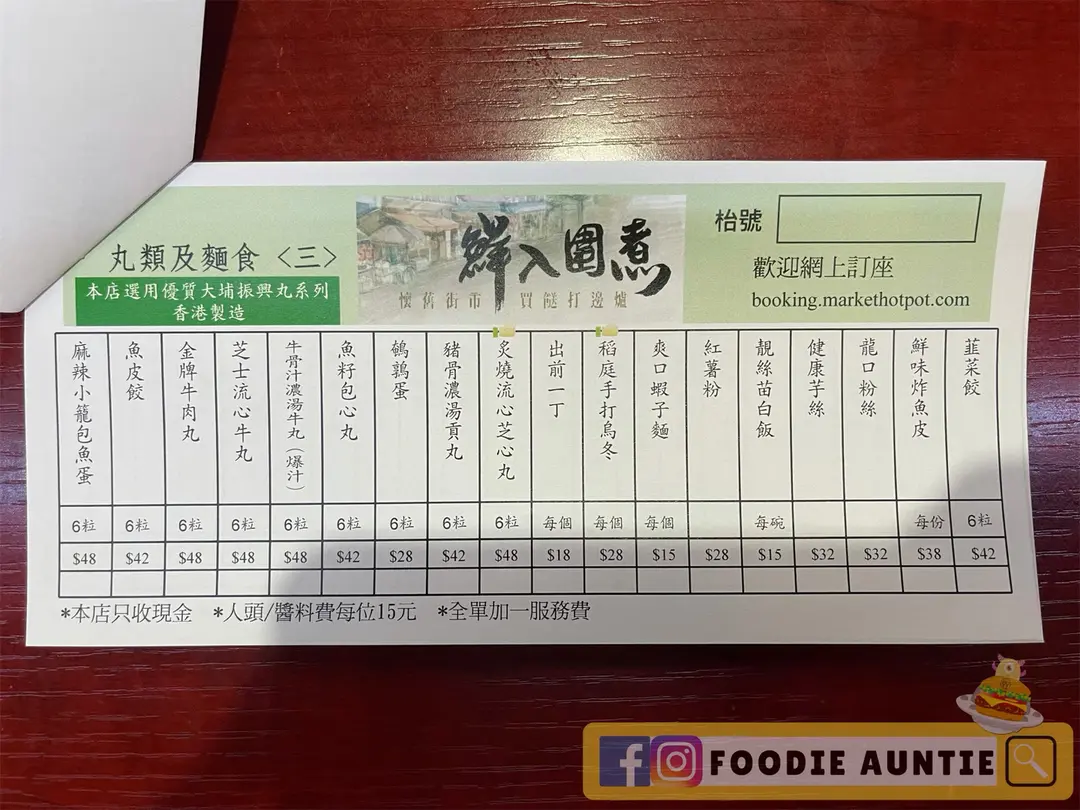 丸類及麵食〈三〉
本店選用優質大埔振興丸系列
香港製造
鮮入圍煮
懷舊街市 買餸打邊爐
枱號
歡迎網上訂座
booking.markethotpot.com
麻辣小籠包魚蛋 6粒 $48
魚皮餃 6粒 $42
金牌牛肉丸 6粒 $48
芝士流心牛丸 6粒 $48
牛骨汁濃湯牛丸（爆汁） 6粒 $48
魚籽包心丸 6粒 $42
鵪鶉蛋 6粒 $28
豬骨濃湯貢丸 6粒 $42
炙燒流心芝心丸 6粒 $48
出前一丁 每個 $18
稻庭手打烏冬 每個 $28
爽口蝦子麵 每個 $15
紅薯粉 $28
靚絲苗白飯 每碗 $15
健康芋絲 $32
龍口粉絲 $32
鮮味炸魚皮 每份 $38
韮菜餃 6粒 $42
*本店只收現金 *人頭/醬料費每位15元 *全單加一服務費
FOODIE AUNTIE